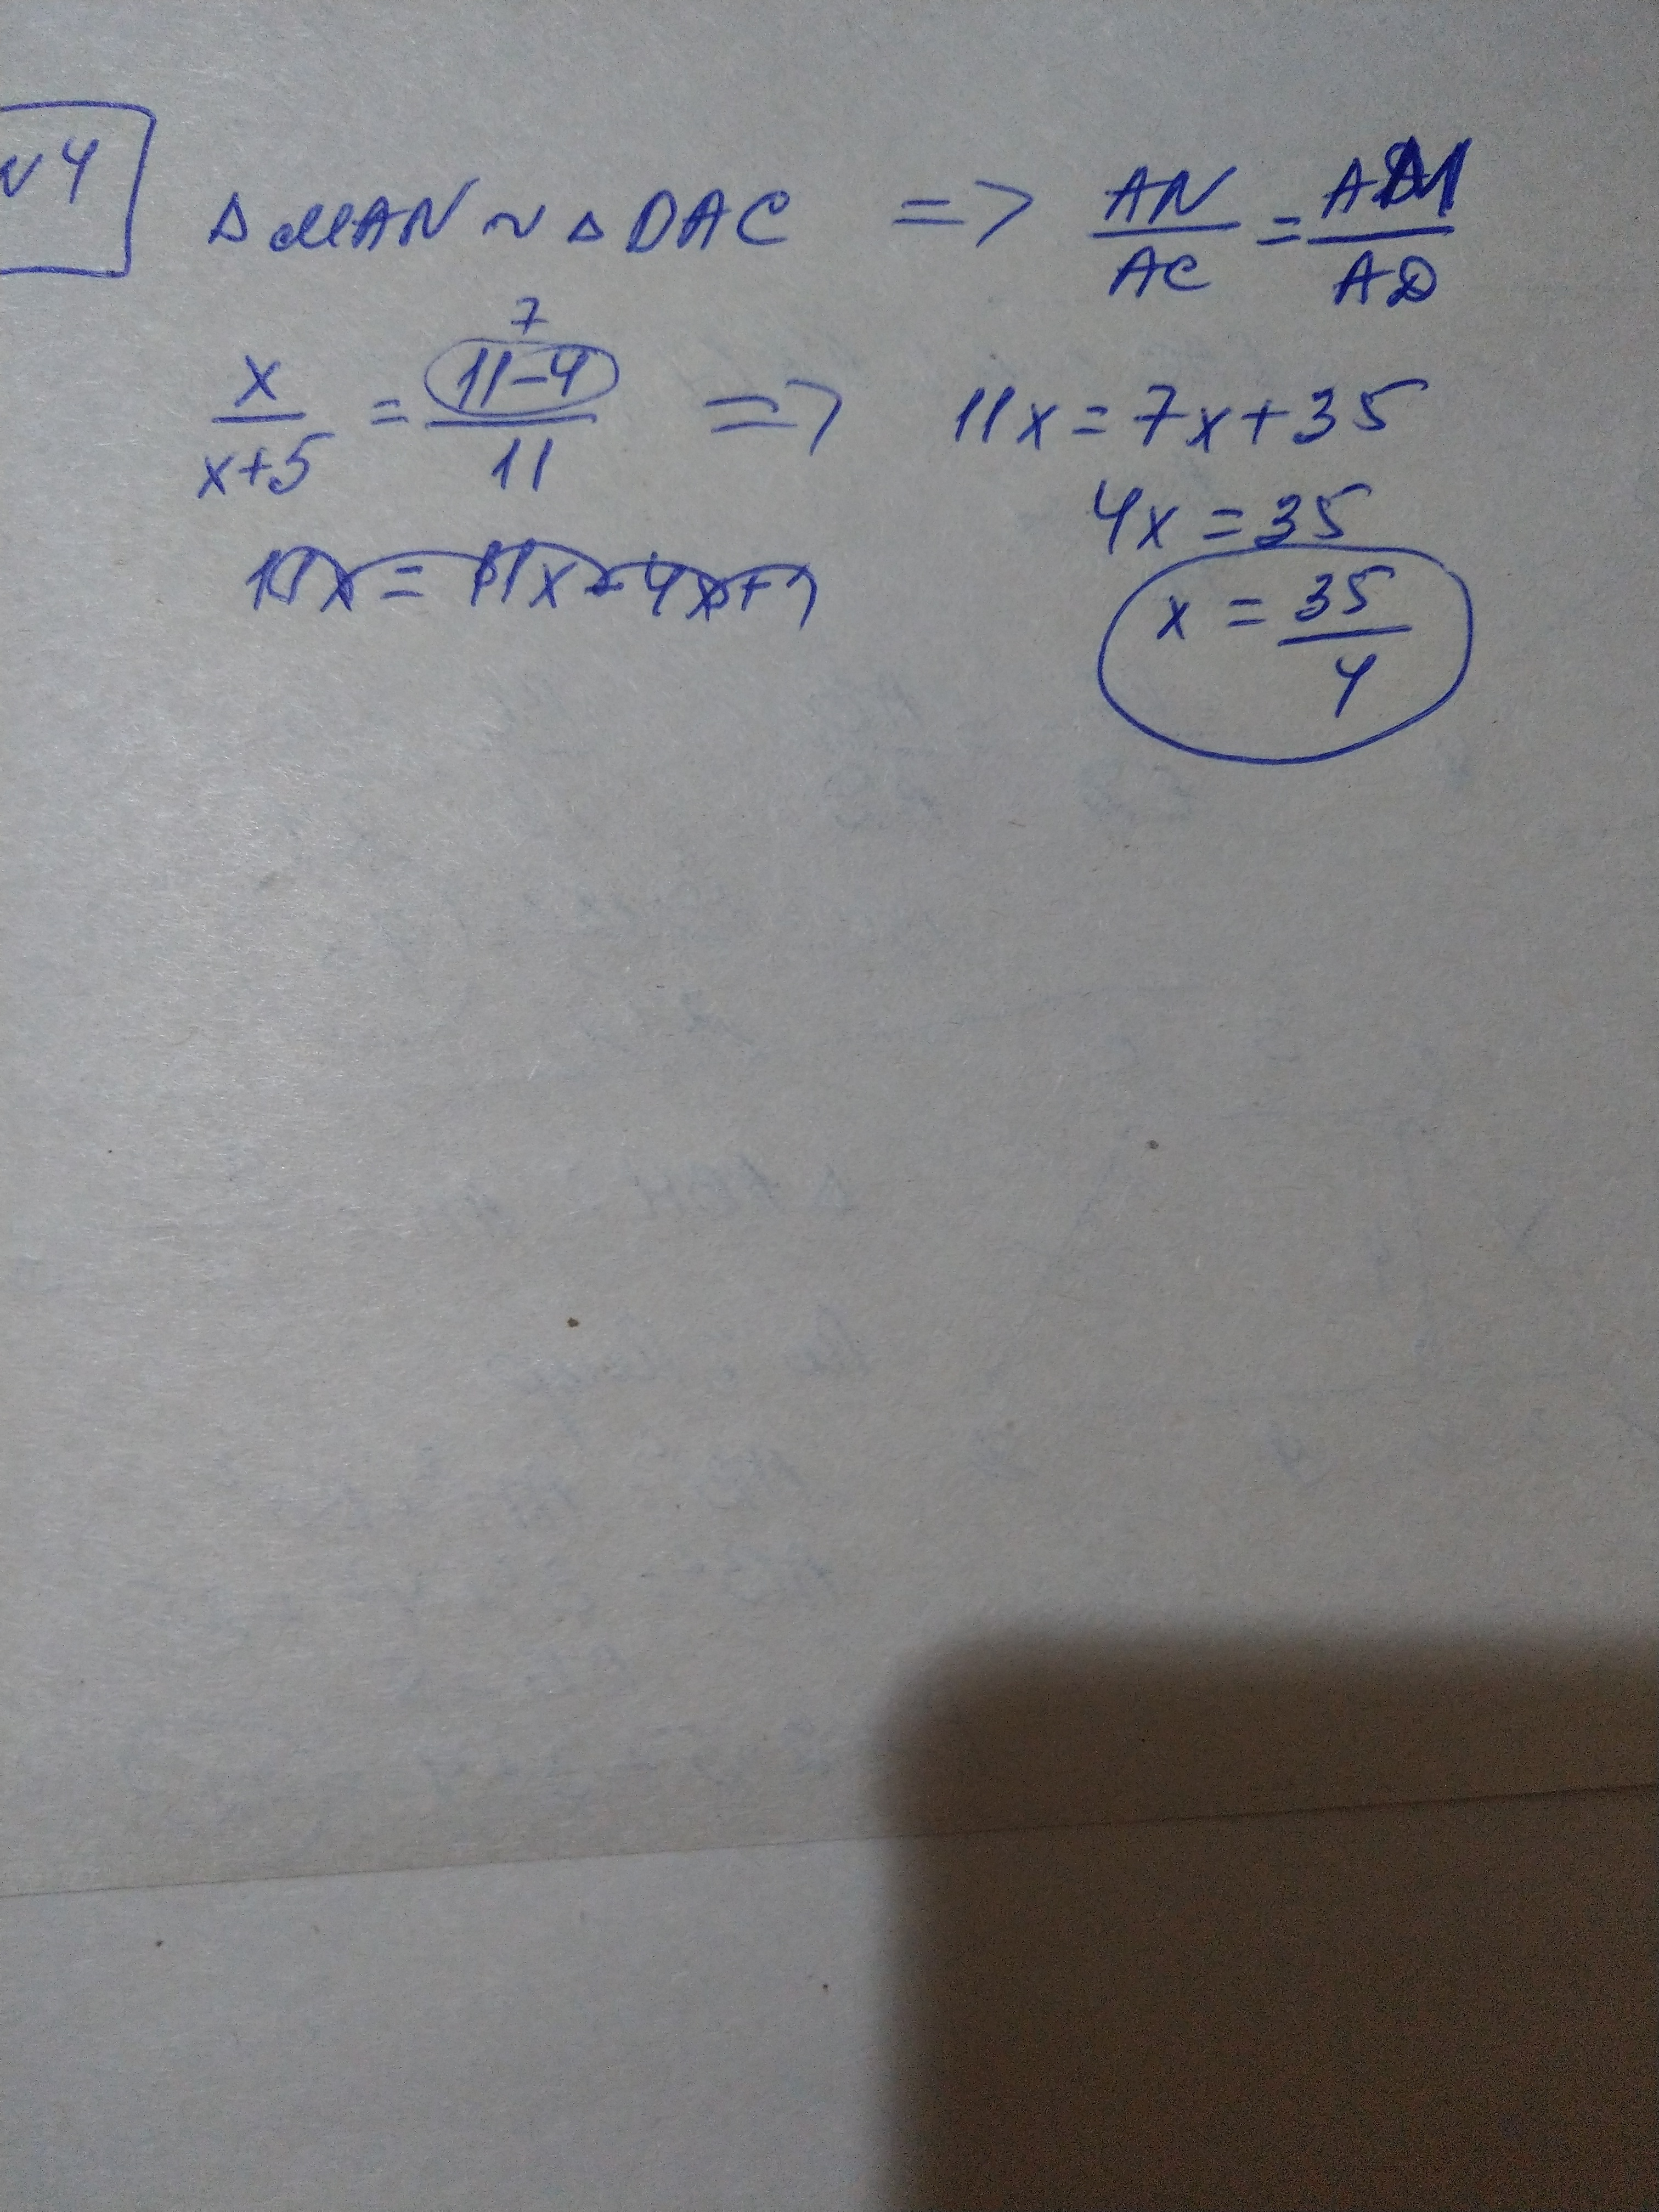 №4
Δ MAN ~ Δ DAC => AN/AC = AM/AD
x/(x+5) = (11-4)/11 7 => 11x = 7x + 35
4x = 35
x = 35/4